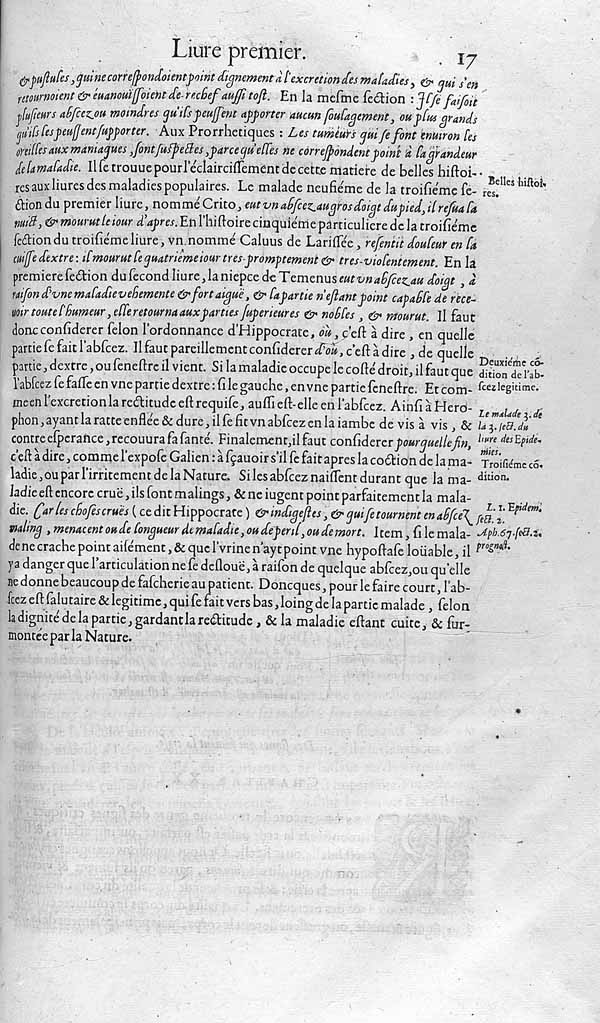 Liure premier. 17
& pustules, qui ne correspondoient point dignement à l'excretion des maladies, & qui s'en
retournoient & euanouissoient de-rechef aussi tost. En la mesme section : Il se faisoit
plusieurs abscez, ou moindres qu'ils peussent apporter aucun soulagement, ou plus grands
qu'ils les peussent supporter. Aux Prorrhetiques : Les tumeurs qui se font enuiron les
oreilles aux maniaques, sont suspectes, parce qu'elles ne correspondent point à la grandeur
de la maladie. Il se trouue pour l'éclaircissement de cette matiere de belles histoi-
res aux liures des maladies populaires. Le malade neufiéme de la troisiéme se-
ction du premier liure, nommé Crito, eut vn abscez au gros doigt du pied, il resua la
nuict, & mourut le iour d'apres. En l'histoire cinquiéme particuliere de la troisiéme
section du troisiéme liure, vn nommé Caluus de Larissée, resentit douleur en la
cuisse dextre : il mourut le quatriéme iour tres-promptement & tres-violentement. En la
premiere section du second liure, la niepce de Temenus eut vn abscez au doigt, à
raison d'vne maladie vehemente & fort aiguë, & la partie n'estant point capable de rece-
uoir toute l'humeur, elle retourna aux parties superieures & nobles, & mourut. Il faut
donc considerer selon l'ordonnance d'Hippocrate, où, c'est à dire, en quelle
partie se fait l'abscez. Il faut pareillement considerer d'où, c'est à dire, de quelle
partie, dextre, ou senestre il vient. Si la maladie occupe le costé droit, il faut que
l'abscez se fasse en vne partie dextre : si le gauche, en vne partie senestre. Et com-
me en l'excretion la rectitude est requise, aussi est-elle en l'abscez. Ainsi à Hero-
phon, ayant la ratte enflée & dure, il se fit vn abscez en la iambe de vis à vis, &
contre esperance, recouura sa santé. Finalement, il faut considerer pour quelle fin,
c'est à dire, comme l'expose Galien : à sçauoir s'il se fait apres la coction de la ma-
ladie, ou par l'irritement de la Nature. Si les abscez naissent durant que la ma-
ladie est encore cruë, ils sont malings, & ne iugent point parfaitement la mala-
die. Car les choses cruës (ce dit Hippocrate) & indigestes, & qui se tournent en abscez
maling, menacent ou de longueur de maladie, ou de peril, ou de mort. Item, si le mala-
de ne crache point aisément, & que l'vrine n'ayt point vne hypostase loüable, il
y a danger que l'articulation ne se desloüe, à raison de quelque abscez, ou qu'elle
ne donne beaucoup de fascherie au patient. Doncques, pour le faire court, l'ab-
scez est salutaire & legitime, qui se fait vers bas, loing de la partie malade, selon
la dignité de la partie, gardant la rectitude, & la maladie estant cuite, & sur-
montée par la Nature.
Belles histoi-
res.
Deuxiéme cō-
dition de l'ab-
scez legitime.
Le malade 3. de
la 3. sect. du
liure des Epide-
mies.
Troisiéme cō-
dition.
L. 1. Epidem.
sect. 2.
Aph. 67. sect. 2.
prognost.